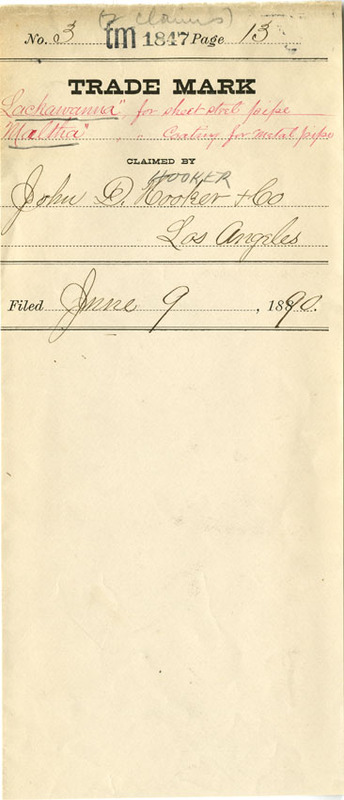 (2 claims)
No. 3 tm 1847 Page 13
TRADE MARK
Lachawanna" for sheet steel pipe
Maltha" " " Coating for metal pipe
CLAIMED BY
HOOKER
John D. Hooker & Co
Los Angeles
Filed June 9, 1890.